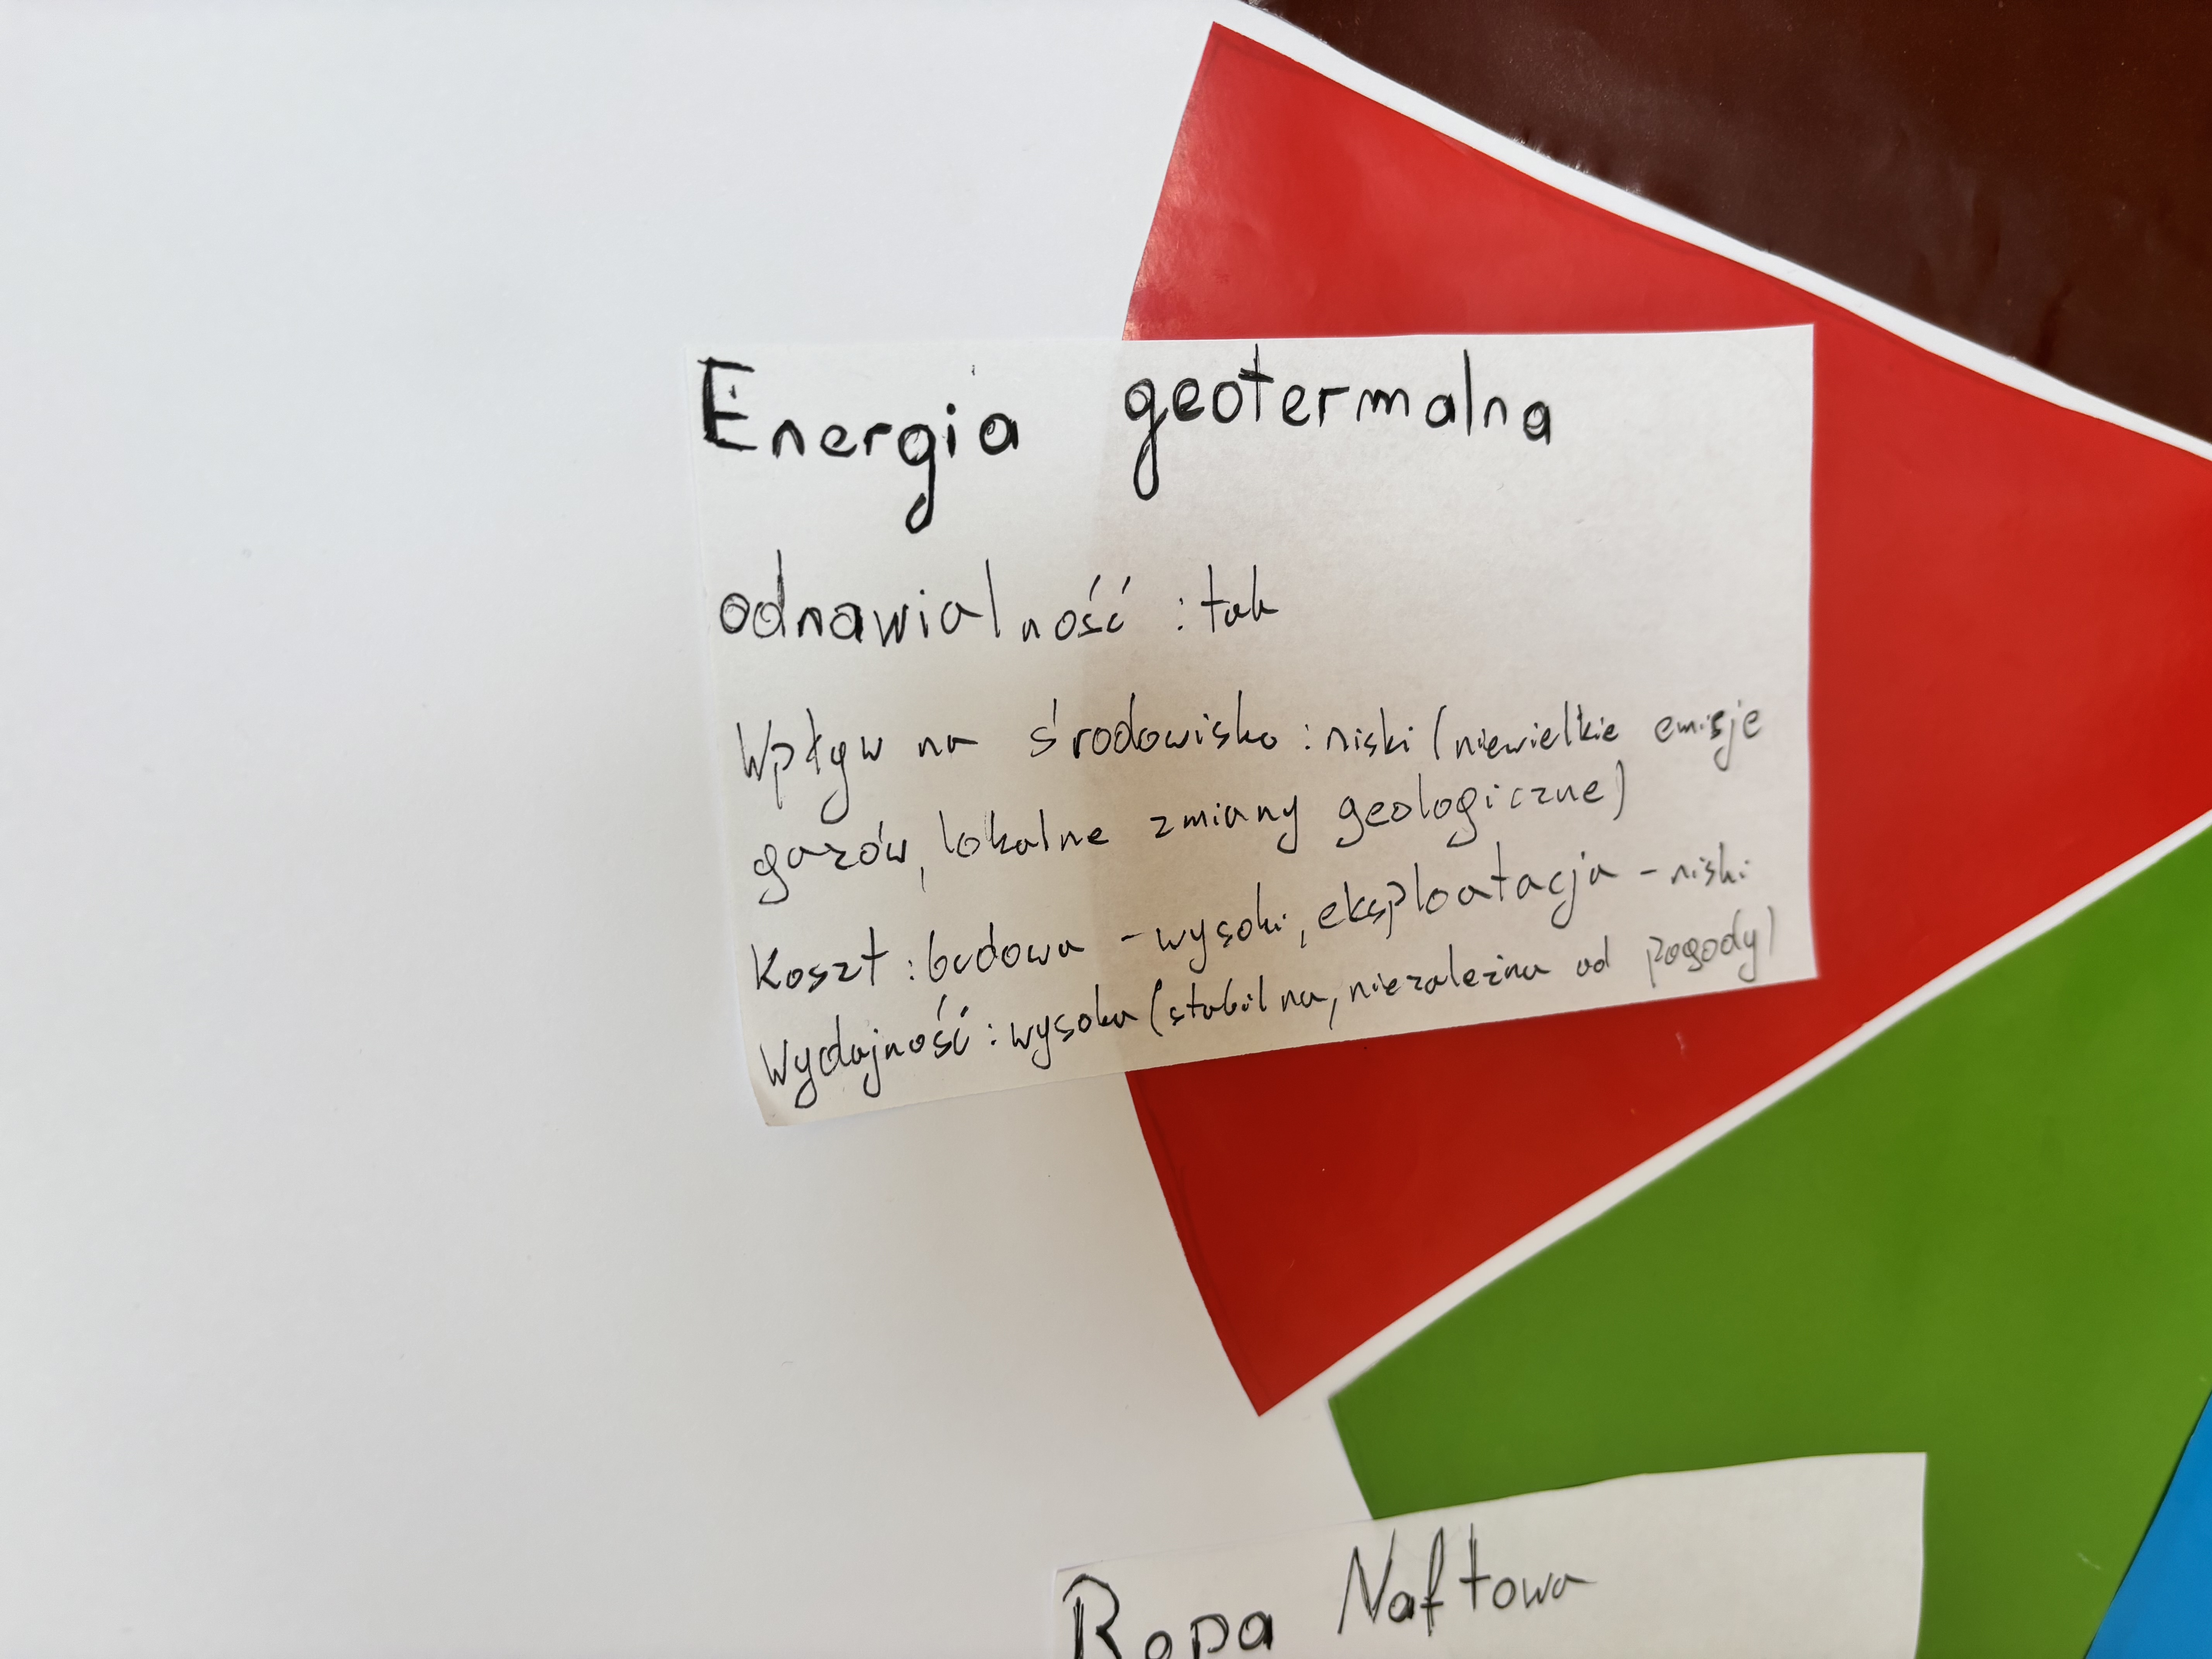 Energia geotermalna
odnawialność : tak
Wpływ na środowisko : niski (niewielkie emisje
gazów, lokalne zmiany geologiczne)
Koszt : budowa - wysoki, eksploatacja - niski
Wydajność : wysoka (stabilna, niezależna od pogody)
Ropa Naftowa